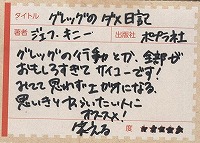 タイトル グレッグのダメ日記
著者 ジェフ・キニー 出版社 ポプラ社
グレッグの行動とか、全部が
おもしろすぎてサイコーです!
みてて思わず上がおになる、
思いきりわらいたい人に
オススメ!
笑える 度 ★★★★★